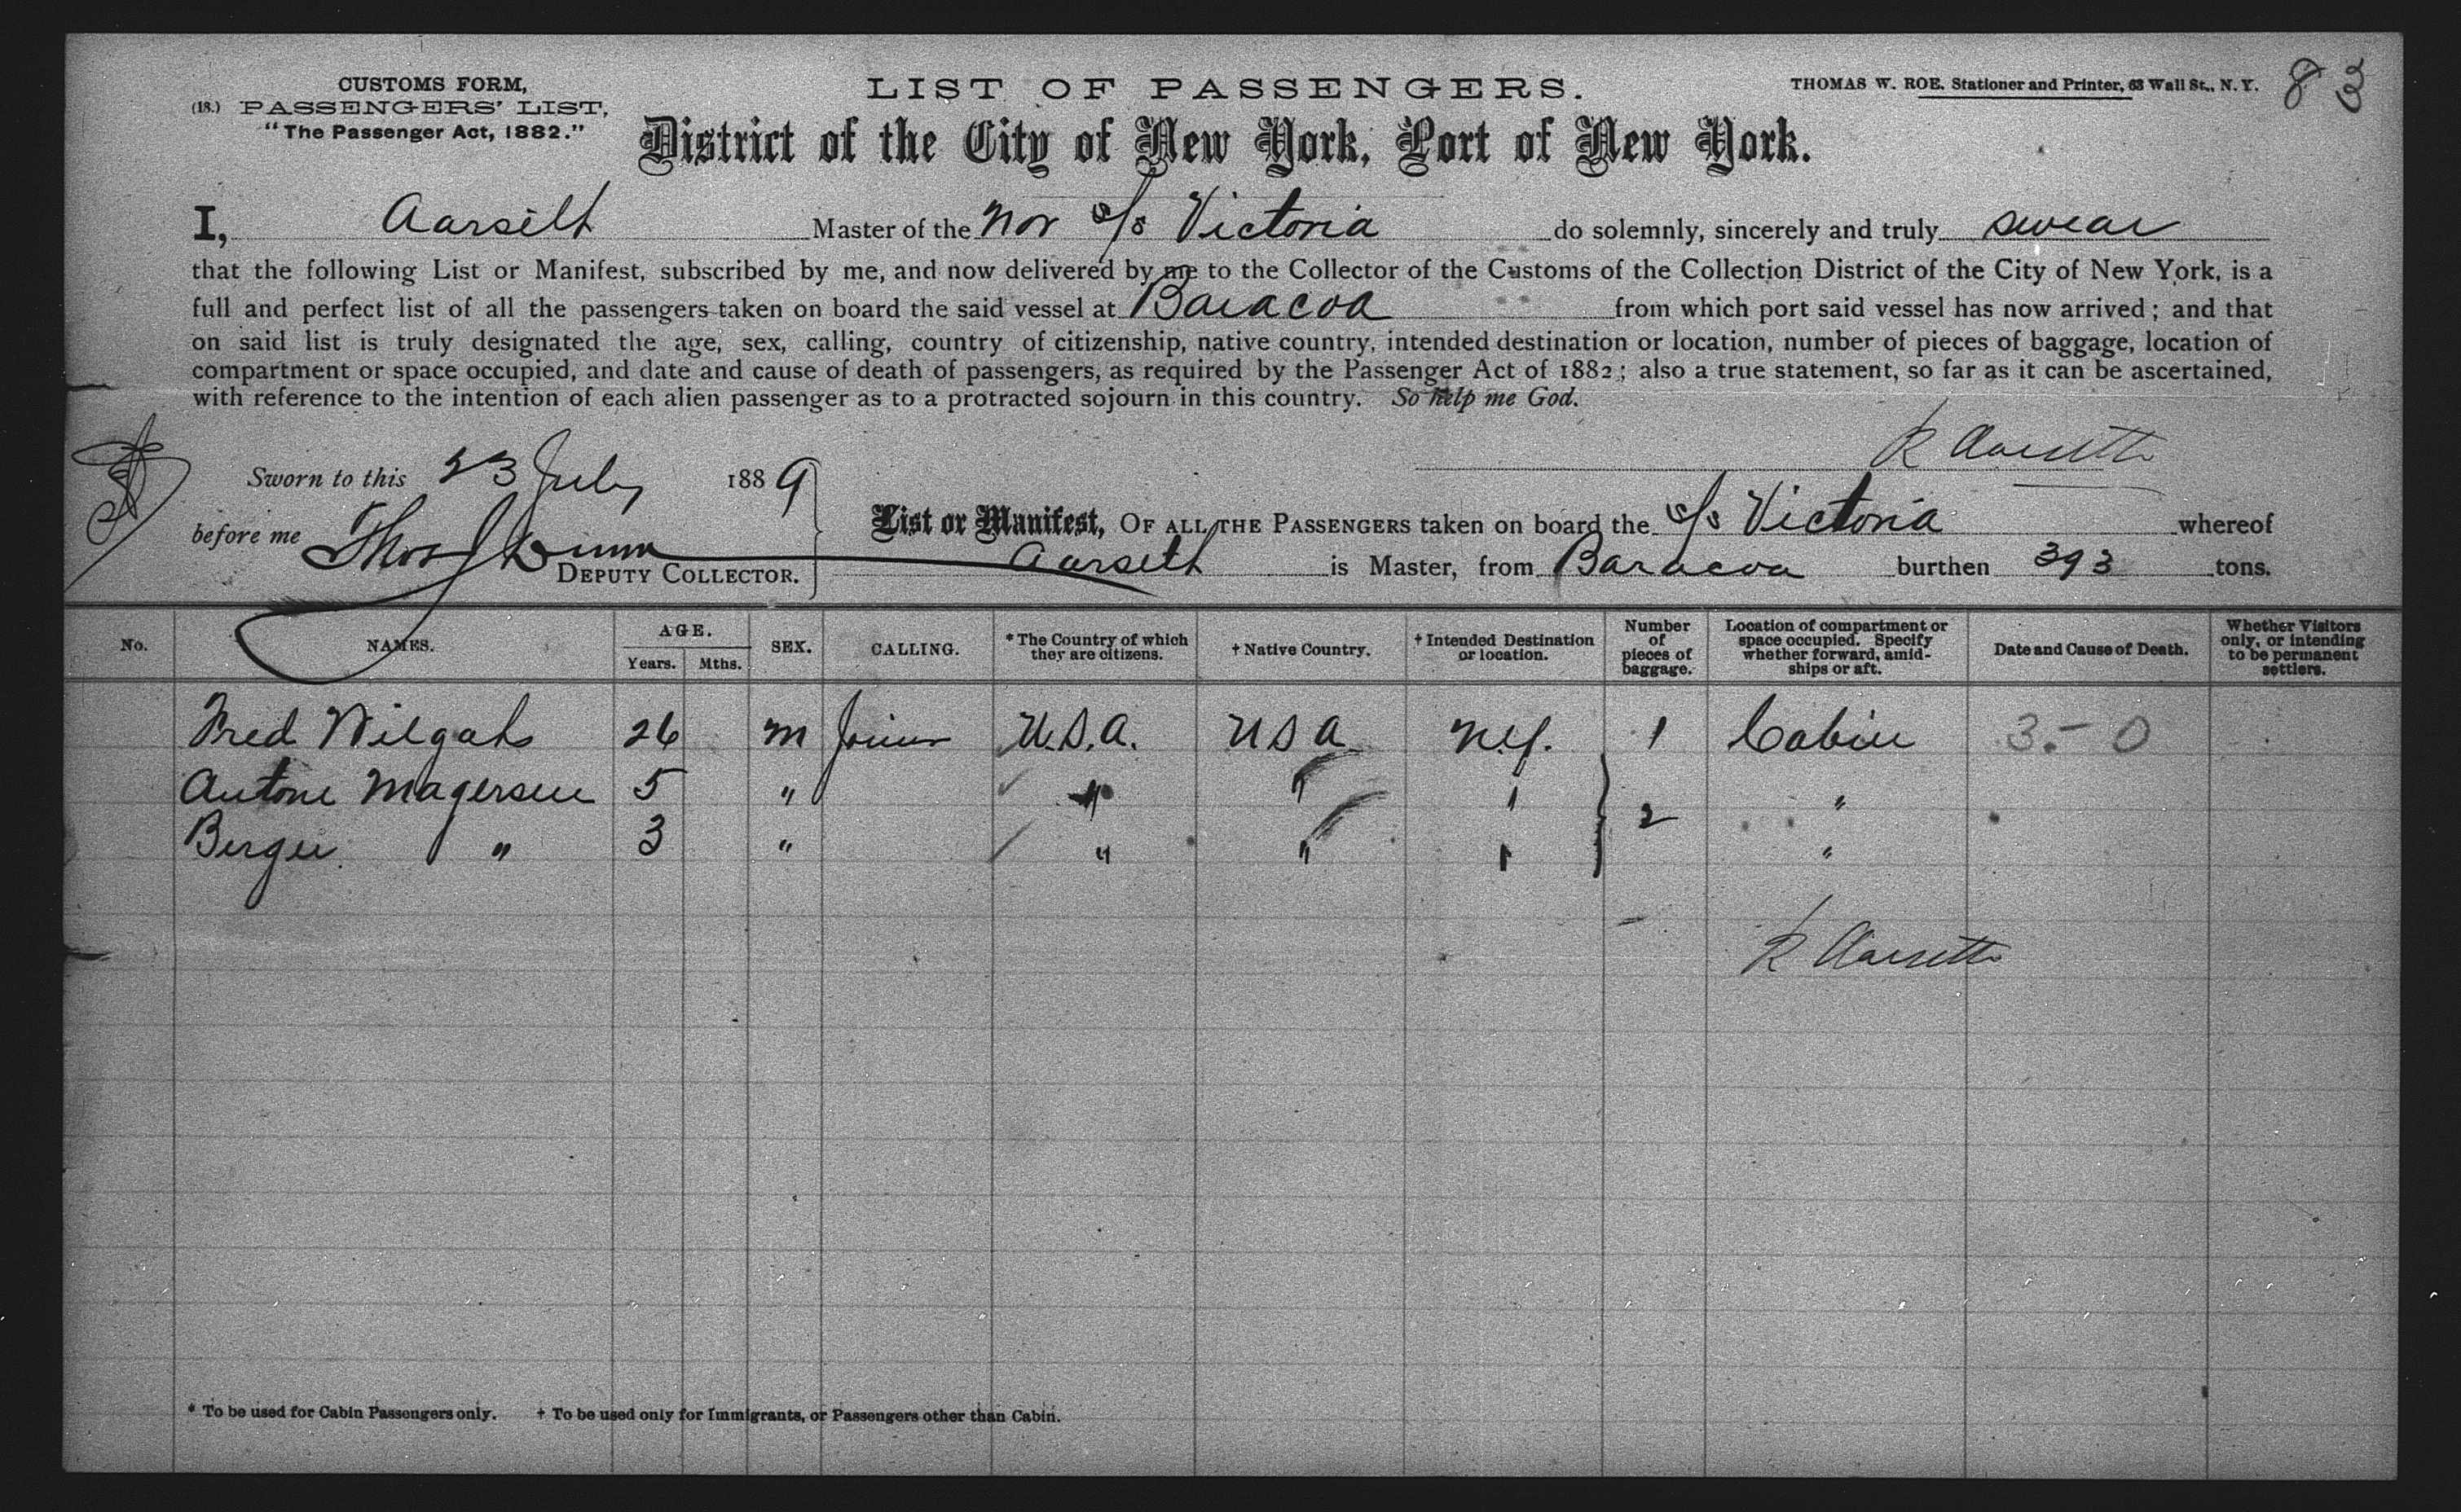 CUSTOMS FORM,
(18.) PASSENGERS' LIST,
"The Passenger Act, 1882."
LIST OF PASSENGERS.
THOMAS W. ROE, Stationer and Printer, 63 Wall St., N. Y.
83
District of the City of New York, Port of New York.
I, Aarseth Master of the Nor s/s Victoria do solemnly, sincerely and truly swear
that the following List or Manifest, subscribed by me, and now delivered by me to the Collector of the Customs of the Collection District of the City of New York, is a
full and perfect list of all the passengers taken on board the said vessel at Baracoa from which port said vessel has now arrived; and that
on said list is truly designated the age, sex, calling, country of citizenship, native country, intended destination or location, number of pieces of baggage, location of
compartment or space occupied, and date and cause of death of passengers, as required by the Passenger Act of 1882; also a true statement, so far as it can be ascertained,
with reference to the intention of each alien passenger as to a protracted sojourn in this country. So help me God.
R Aarseth
Sworn to this 23 July 1889
before me Thos J Dunn
DEPUTY COLLECTOR.
List or Manifest, OF ALL THE PASSENGERS taken on board the s/s Victoria whereof
Aarseth is Master, from Baracoa burthen 393 tons.
No. NAMES. AGE. Years. Mths. SEX. CALLING. * The Country of which they are citizens. † Native Country. † Intended Destination or location. Number of pieces of baggage. Location of compartment or space occupied. Specify whether forward, amidships or aft. Date and Cause of Death. Whether Visitors only, or intending to be permanent settlers.
Fred 26 m Joiner U.S.A. USA N.Y. 1 Cabin 3-0
Antone Magersen 5 " " " " 2 "
" 3 " " " " "
R Aarseth
* To be used for Cabin Passengers only. † To be used only for Immigrants, or Passengers other than Cabin.